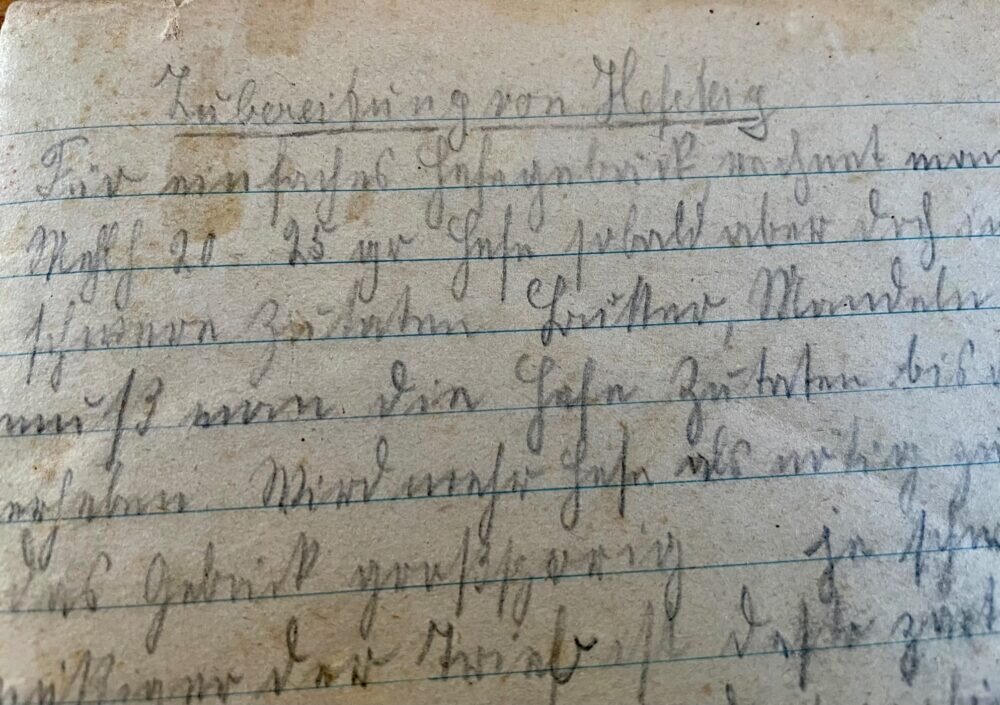 Zubereitung von Hefeteig
Für einfaches Hefegebäck rechnet man
20 - 25 gr Hefe sobald aber
schwere Zutaten Butter, Mandeln
muß man die Hefe Zutaten bis
erheben Wird mehr Hefe als nötig
das Gebäck großporig je
der Trieb ist desto